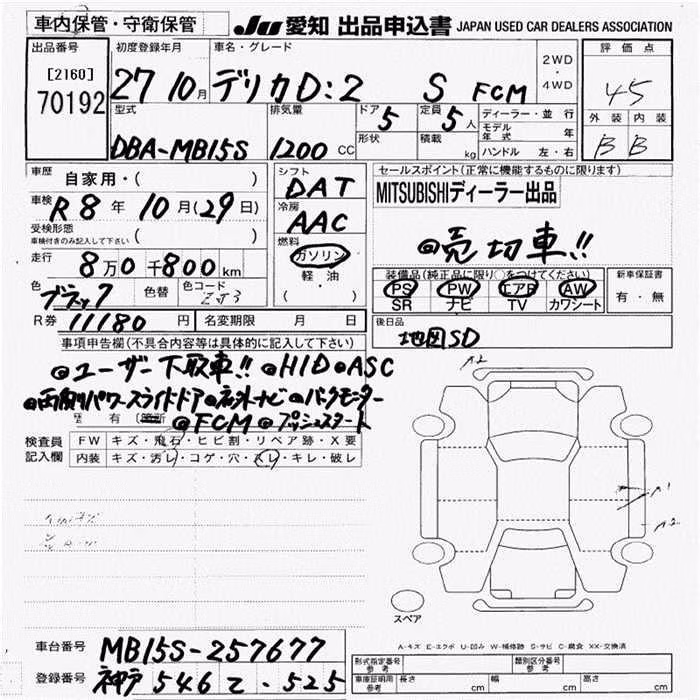 車内保管・守衛保管 JU 愛知 出品申込書 JAPAN USED CAR DEALERS ASSOCIATION
出品番号 初度登録年月 車名・グレード 2WD・4WD 評価点
[2160] 70192 27 10月 デリカD:2 S FCM 45
型式 排気量 ドア 5 定員 5人 ディーラー・並行 外装 内装
形状 積載 kg モデル年式 年 B B
DBA-MB15S 1200 CC ハンドル 左・右
車歴 自家用・( ) シフト DAT セールスポイント(正常に機能するものに限ります)
車検 R8年10月(29日) 冷房 AAC MITSUBISHIディーラー出品
受検形態 車検付きのみ記入して下さい ( ) 燃料 ◎売切車!!
走行 8万0千800km ガソリン 軽・油 ( ) 装備品(純正品に限り○をつけてください) 新車保証書
色 ブラック 色替 色コード ZJ3 PS PW エアB AW 有・無
SR ナビ TV カワシート
R券 11180円 名変期限 月 日 後日品 地図SD
事項申告欄(不具合内容等は具体的に記入して下さい)
◎ユーザー下取車!! ◎HID◎ASC A2
◎両側パワースライドドア◎社外ナビ◎バックモニター
有 (箇所 ◎FCM ◎プッシュスタート
検査員記入欄 FW キズ・飛石・ヒビ割・リペア跡・X要
内装 キズ・汚レ・コゲ・穴・スレ・キレ・破レ
A1
A2
スペア
A-キズ E-エクボ U-凹み W-補修跡 S-サビ C-腐食 XX-交換済
車台番号 MB15S-257677 形式指定番号 参考 類別区分番号 参考
登録番号 神戸 546 て・525 車庫証明用 参考 長さ cm 幅 cm 高さ cm